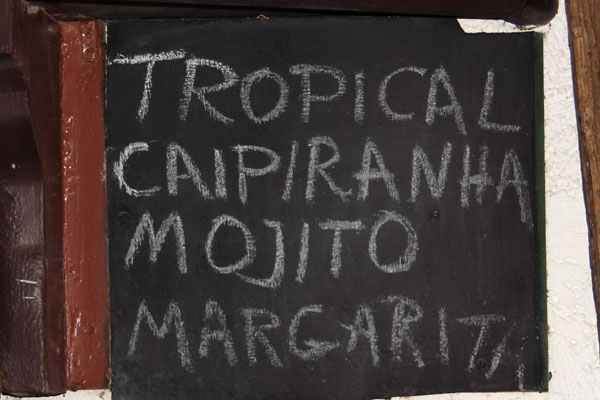 TROPICAL
CAIPIRANHA
MOJITO
MARGARITA